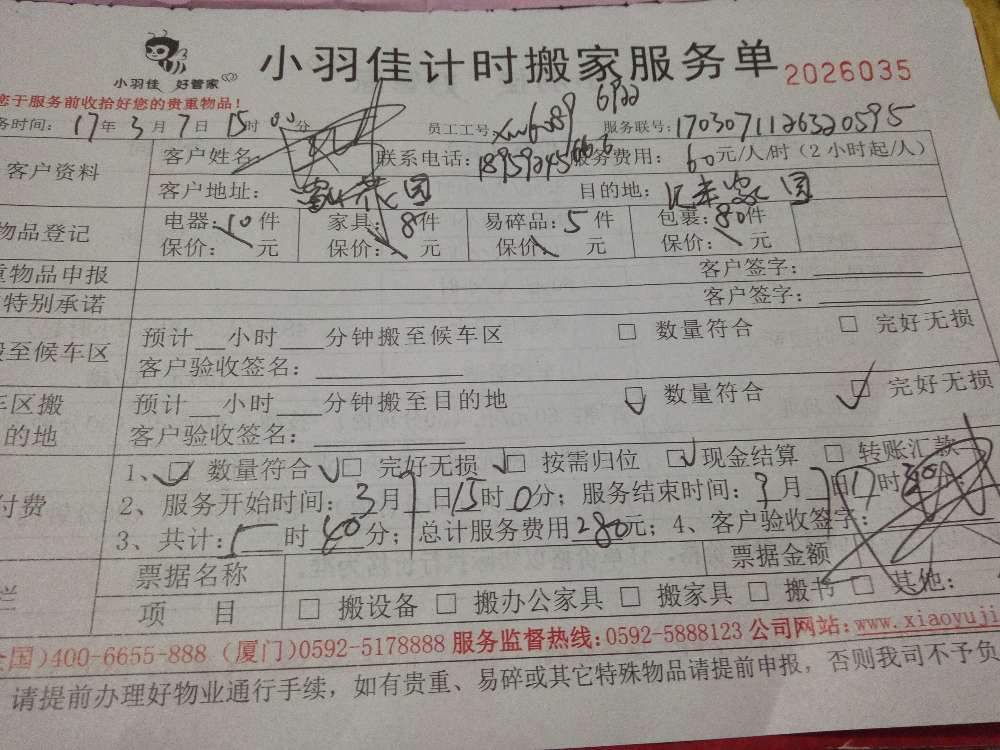 小羽佳 好管家
小羽佳计时搬家服务单 2026035
您于服务前收拾好您的贵重物品!
务时间: 17年3月7日15时00分 员工工号: 服务联号:1703071126320595
客户资料 客户姓名: 联系电话: 服务费用: 60元/人/时(2小时起/人)
客户地址: 花园 目的地: 园
物品登记 电器:10件 家具:8件 易碎品:5件 包裹:80件
保价: 元 保价: 元 保价: 元 保价: 元
重物品申报 客户签字:
特别承诺 客户签字:
搬至候车区 预计__小时___分钟搬至候车区 □ 数量符合 □ 完好无损
客户验收签名:
车区搬 预计__小时___分钟搬至目的地 □ 数量符合 □ 完好无损
的地 客户验收签名:
付费 1、□ 数量符合 □ 完好无损 □ 按需归位 □ 现金结算 □ 转账汇款
2、服务开始时间:3月7日15时0分;服务结束时间: 月 日 时 分;
3、共计: 时40分;总计服务费用280元;4、客户验收签字:
栏 票据名称 票据金额
项 目 □ 搬设备 □ 搬办公家具 □ 搬家具 □ 搬书 □ 其他:
全国)400-6655-888 (厦门)0592-5178888 服务监督热线:0592-5888123 公司网站:www.xiaoyuji
请提前办理好物业通行手续,如有贵重、易碎或其它特殊物品请提前申报,否则我司不予负